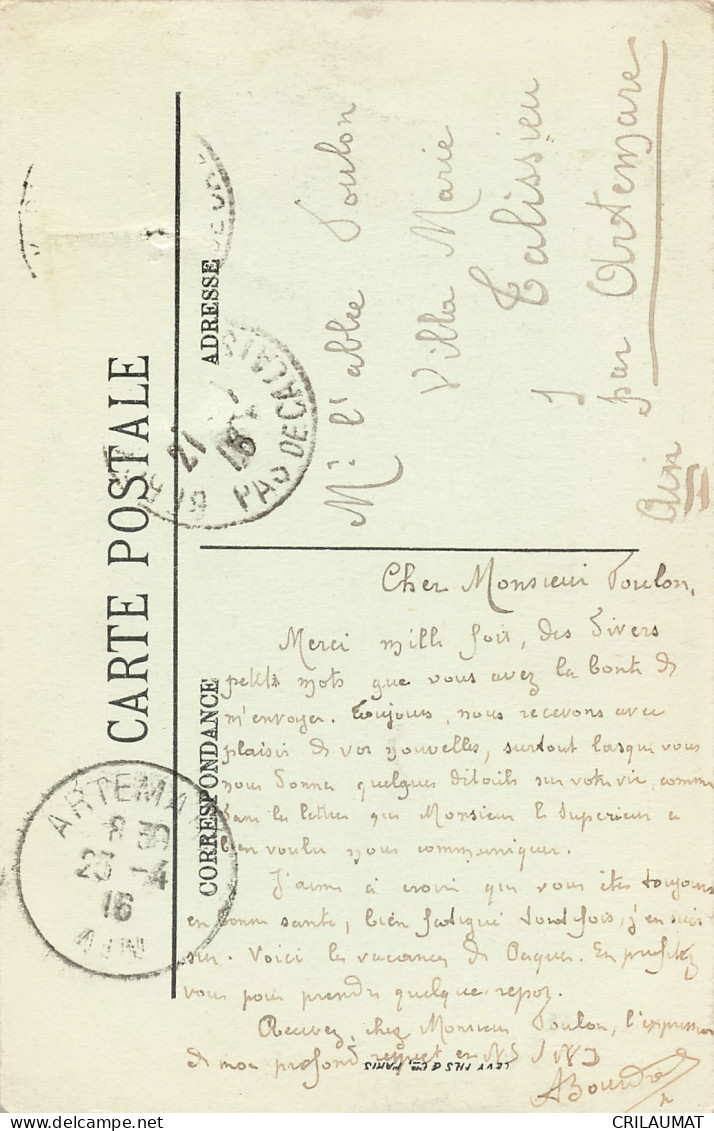 CARTE POSTALE
ADRESSE
Mr l'abbé Poulon
Villa Marie
Talissieu
par Artemare
Ain
PAS DE CALAIS
21
16
ARTEMARE
8 30
23 -4
16
AIN
CORRESPONDANCE
Cher Monsieur Poulon,
Merci mille fois, des divers
petits mots que vous avez la bonté de
m'envoyer. Toujours, nous recevons avec
plaisir de vos nouvelles, surtout lorsque vous
nous donnez quelques détails sur votre vie, comme
dans la lettre que Monsieur le Supérieur a
bien voulu nous communiquer.
J'aime à croire que vous êtes toujours
en bonne santé, bien fatigué toutefois, j'en suis
sûr. Voici les vacances de Pâques. En profitez
vous pour prendre quelque repoz.
Recevez, cher Monsieur Poulon, l'expression
de mon profond respect en N.S
LEVY FILS & Cie PARIS
CRILAUMAT